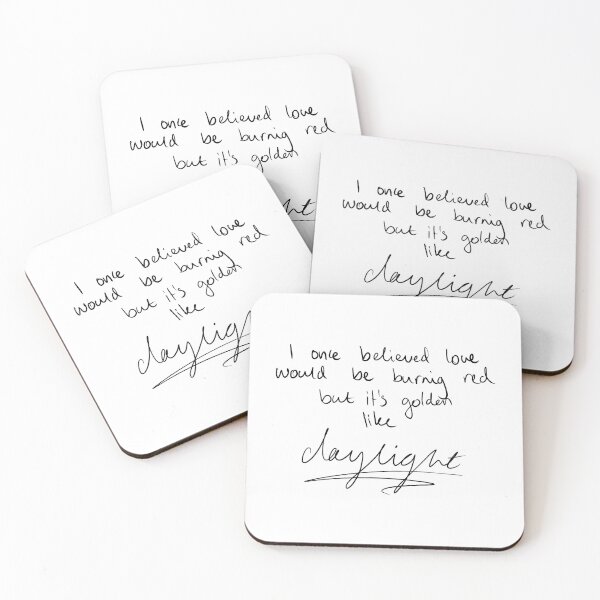 I once believed love
would be burnig red
but it's golden
ht
I once believed love
would be burnig red
but it's golden
like
daylight
I once believed love
would be burnig red
but it's golden
like
dayligh
I once believed love
would be burnig red
but it's golden
like
daylight